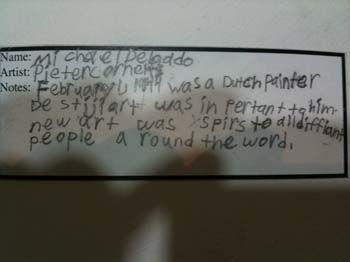 Name: Michael Delgado
Artist: Pietercorneils
Notes: February 1, 1944 was a Dutch Painter
De stijl art was in pertant to him
new art was spirs to all diffiant
people a round the word.